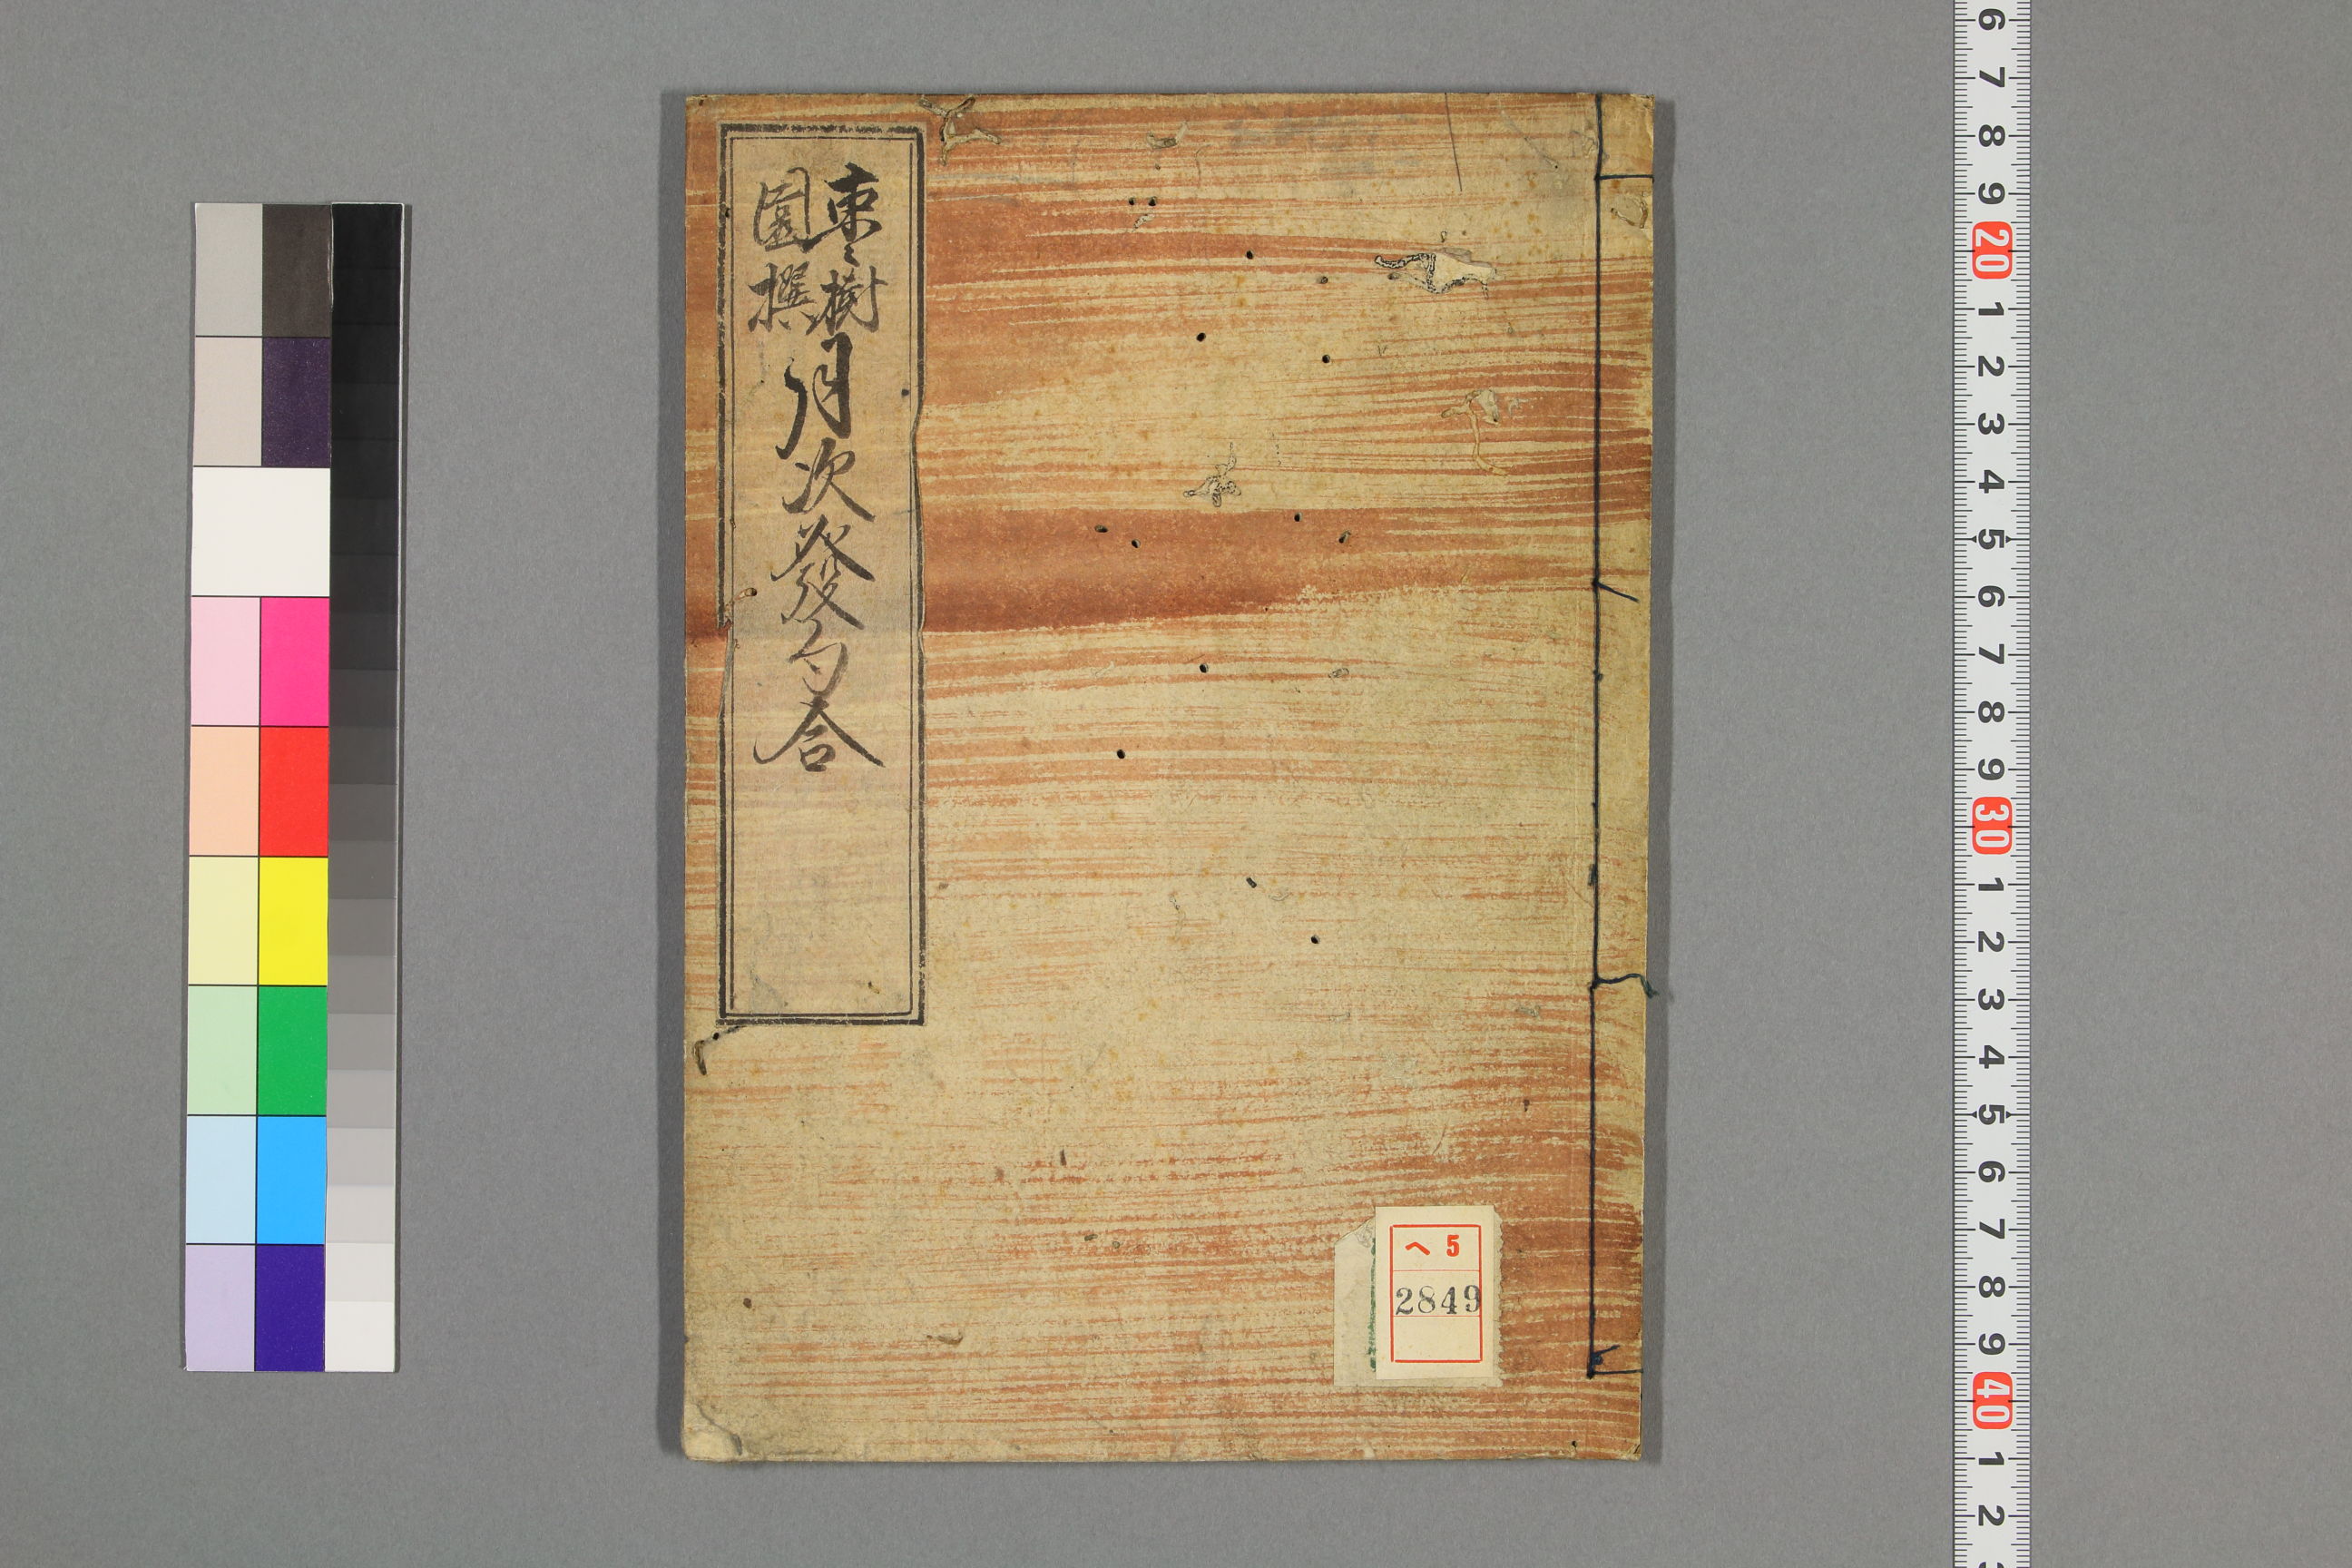 東〻樹
園撰
月次發句合
ヘ 5
2849
6 7 8 9 20 1 2 3 4 5 6 7 8 9 30 1 2 3 4 5 6 7 8 9 40 1 2